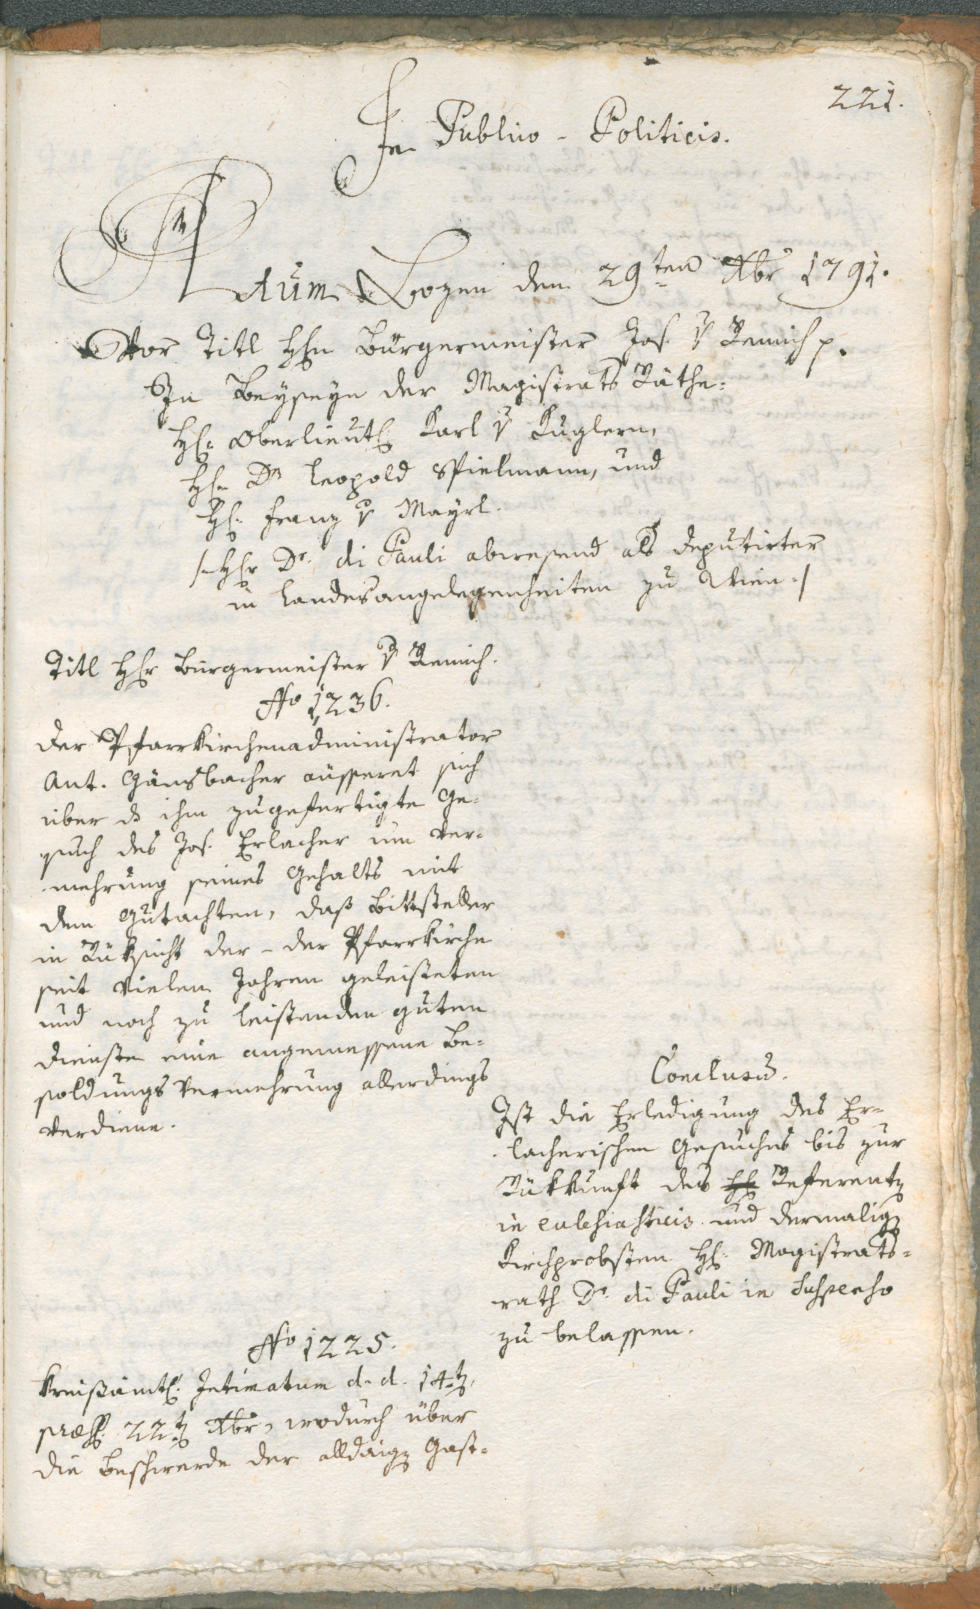 221.
In Publico-Politicis.
Actum Bozen den 29ten Xbr 1791.
Vor Titl Hhn Bürgermeister Jos. v Remich p.
In Beyseyn der Magistrats Räthe:
Hh. Oberlieut. Karl v Kuglern,
Hhn Dr Leopold Spielmann, und
Hh. Franz v Mayrl.
/: Hhr Dr. di Pauli abwesend als deputirter
in Landesangelegenheiten zu Wien :/
Titl Hhr Bürgermeister v Remich.
No 1236.
Der Pfarrkirchenadministrator
Ant. Gänsbacher äusseret sich
über ds ihm zugefertigte Ge-
such des Jos. Erlacher um Ver-
mehrung seines Gehalts mit
dem Gutachten, daß Bittsteller
in Rüksicht der - der Pfarrkirche
seit vielen Jahren geleisteten
und noch zu leistenden guten
Dienste eine angemessene Be-
soldungs Vermehrung allerdings
verdiene.
Conclusum.
Ist die Erledigung des Er-
lacherischen Gesuches bis zur
Rükkunft des Referenten
in Eccleshiasticis und dermaligen
Kirchprobsten Hh. Magistrats-
rath Dr. di Pauli in Suspenso
zu belassen.
No 1225.
Kreisämtl. Intimatum d. d. 14ten,
præs. 22ten Xbr, wodurch über
die Beschwerde der alldaigen Gast-